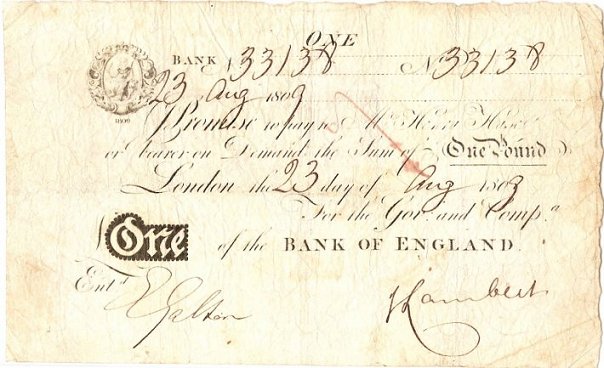 ONE
BANK No 33138 No 33138
23 Aug 1809
I Promise to pay to Mr. Hase
or bearer on Demand the Sum of One Pound
London the 23 day of Aug 1809
For the Gov. and Comp.a
One of the BANK OF ENGLAND.
Ent.d
J Lambert